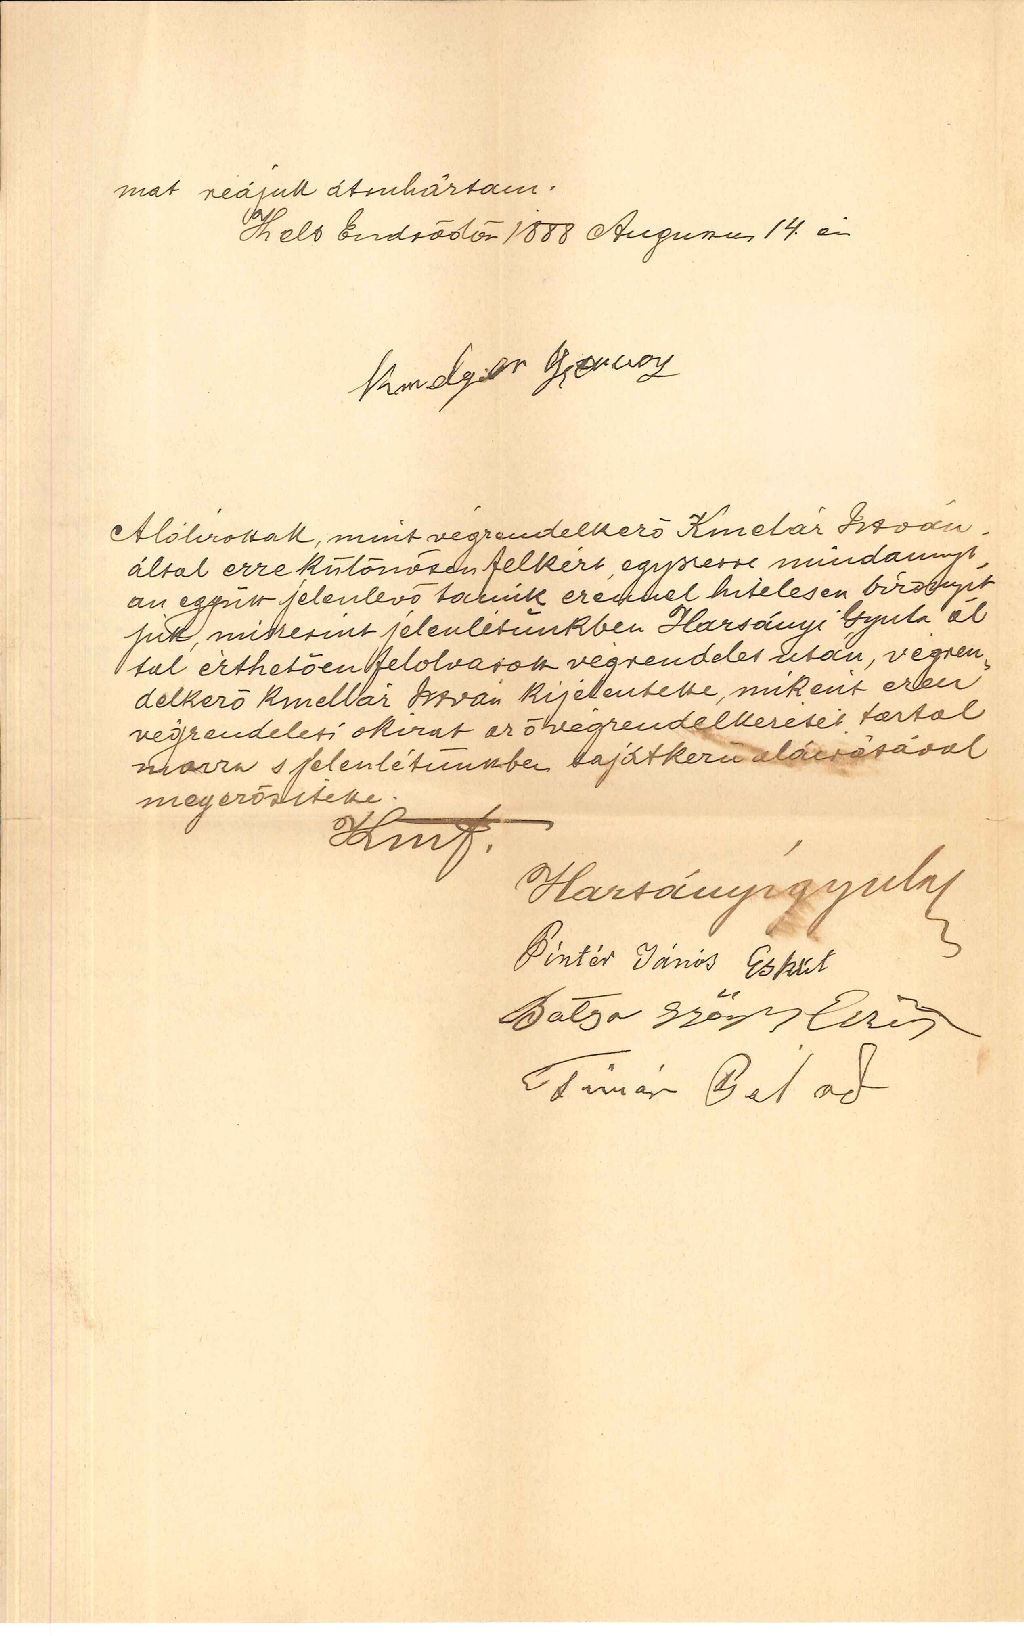 mat reájuk átruháztam.
Kelt Endrődön 1888 Augusztus 14. én
Alólírottak, mint végrendelkező Kmetár István
által erre különösen felkért, egyszerre mindannyi„
an együtt jelenlevő tanúk ezennel hitelesen bizonyít
juk, miszerint jelenlétünkben Harsányi Gyula ál
tal érthetően felolvasott végrendelet után, végren„
delkező Kmettár István kijelentette, miként ezen
végrendeleti okirat az ő végrendelkezését tartal
mazza s jelenlétünkben sajátkezű aláirásával
megerősitette.
Kmf.
Harsányi gyula
Pintér János Esküt
Tímár Bel